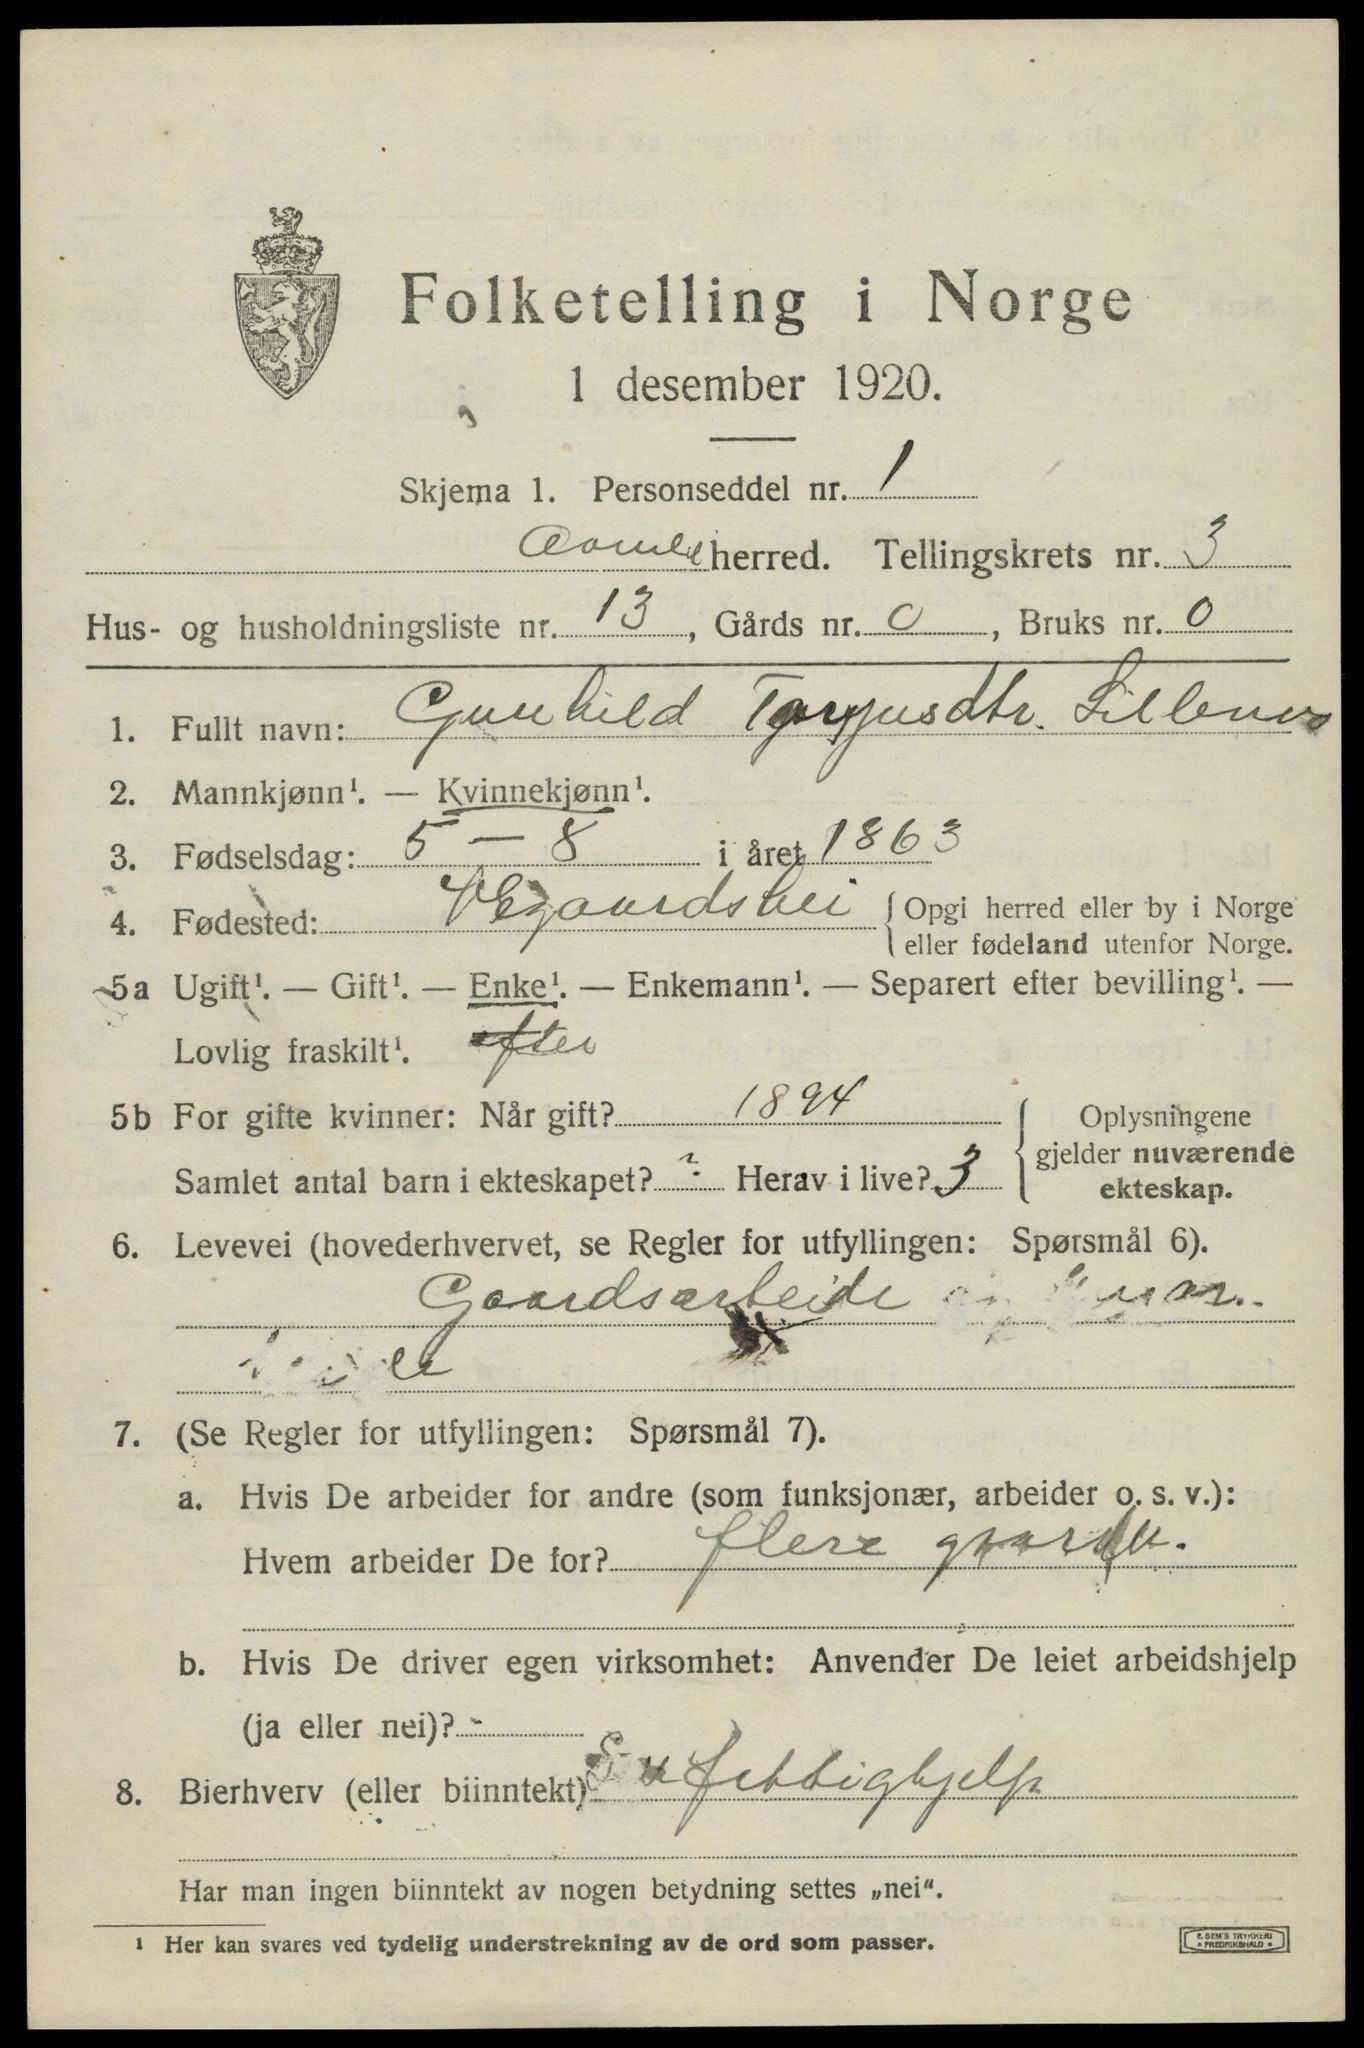 Folketelling i Norge
1 desember 1920.
Skjema 1. Personseddel nr. 1
herred. Tellingskrets nr. 3
Hus- og husholdningsliste nr. 13, Gårds nr. 0, Bruks nr. 0
1. Fullt navn: Gunhild Targjusdtr.
2. Mannkjønn¹. — Kvinnekjønn¹.
3. Fødselsdag: 5 – 8 i året 1863
4. Fødested: Vegaardshei { Opgi herred eller by i Norge
eller fødeland utenfor Norge.
5a Ugift¹. — Gift¹. — Enke¹. — Enkemann¹. — Separert efter bevilling¹. —
Lovlig fraskilt¹. efter
5b For gifte kvinner: Når gift? 1894
Samlet antal barn i ekteskapet? ? Herav i live? 3
{ Oplysningene
gjelder nuværende
ekteskap.
6. Levevei (hovederhvervet, se Regler for utfyllingen: Spørsmål 6).
Gaardsarbeide
7. (Se Regler for utfyllingen: Spørsmål 7).
a. Hvis De arbeider for andre (som funksjonær, arbeider o. s. v.):
Hvem arbeider De for? flere
b. Hvis De driver egen virksomhet: Anvender De leiet arbeidshjelp
(ja eller nei)? -
8. Bierhverv (eller biinntekt) fattighjelp
Har man ingen biinntekt av nogen betydning settes „nei“.
¹ Her kan svares ved tydelig understrekning av de ord som passer.
E. SEM'S TRYKKERI
• FREDRIKSHALD •